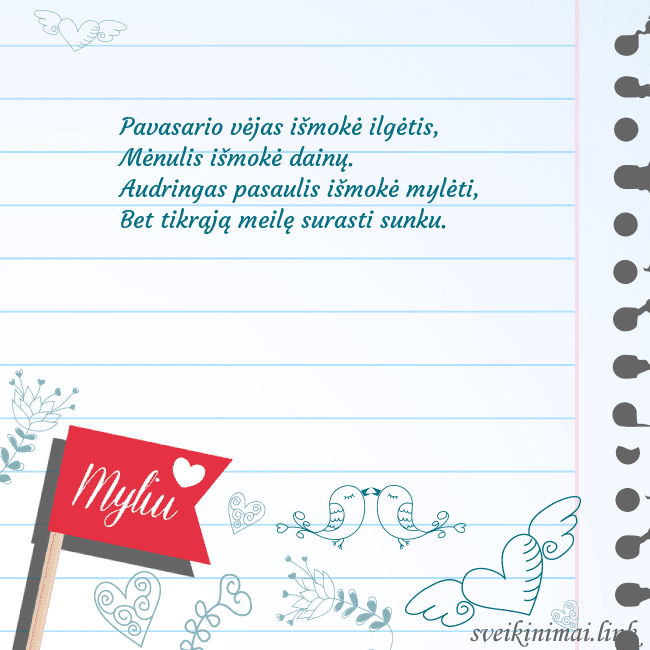 Pavasario vėjas išmokė ilgėtis,
Mėnulis išmokė dainų.
Audringas pasaulis išmokė mylėti,
Bet tikrają meilę surasti sunku.
Myliu
sveikinimai.link